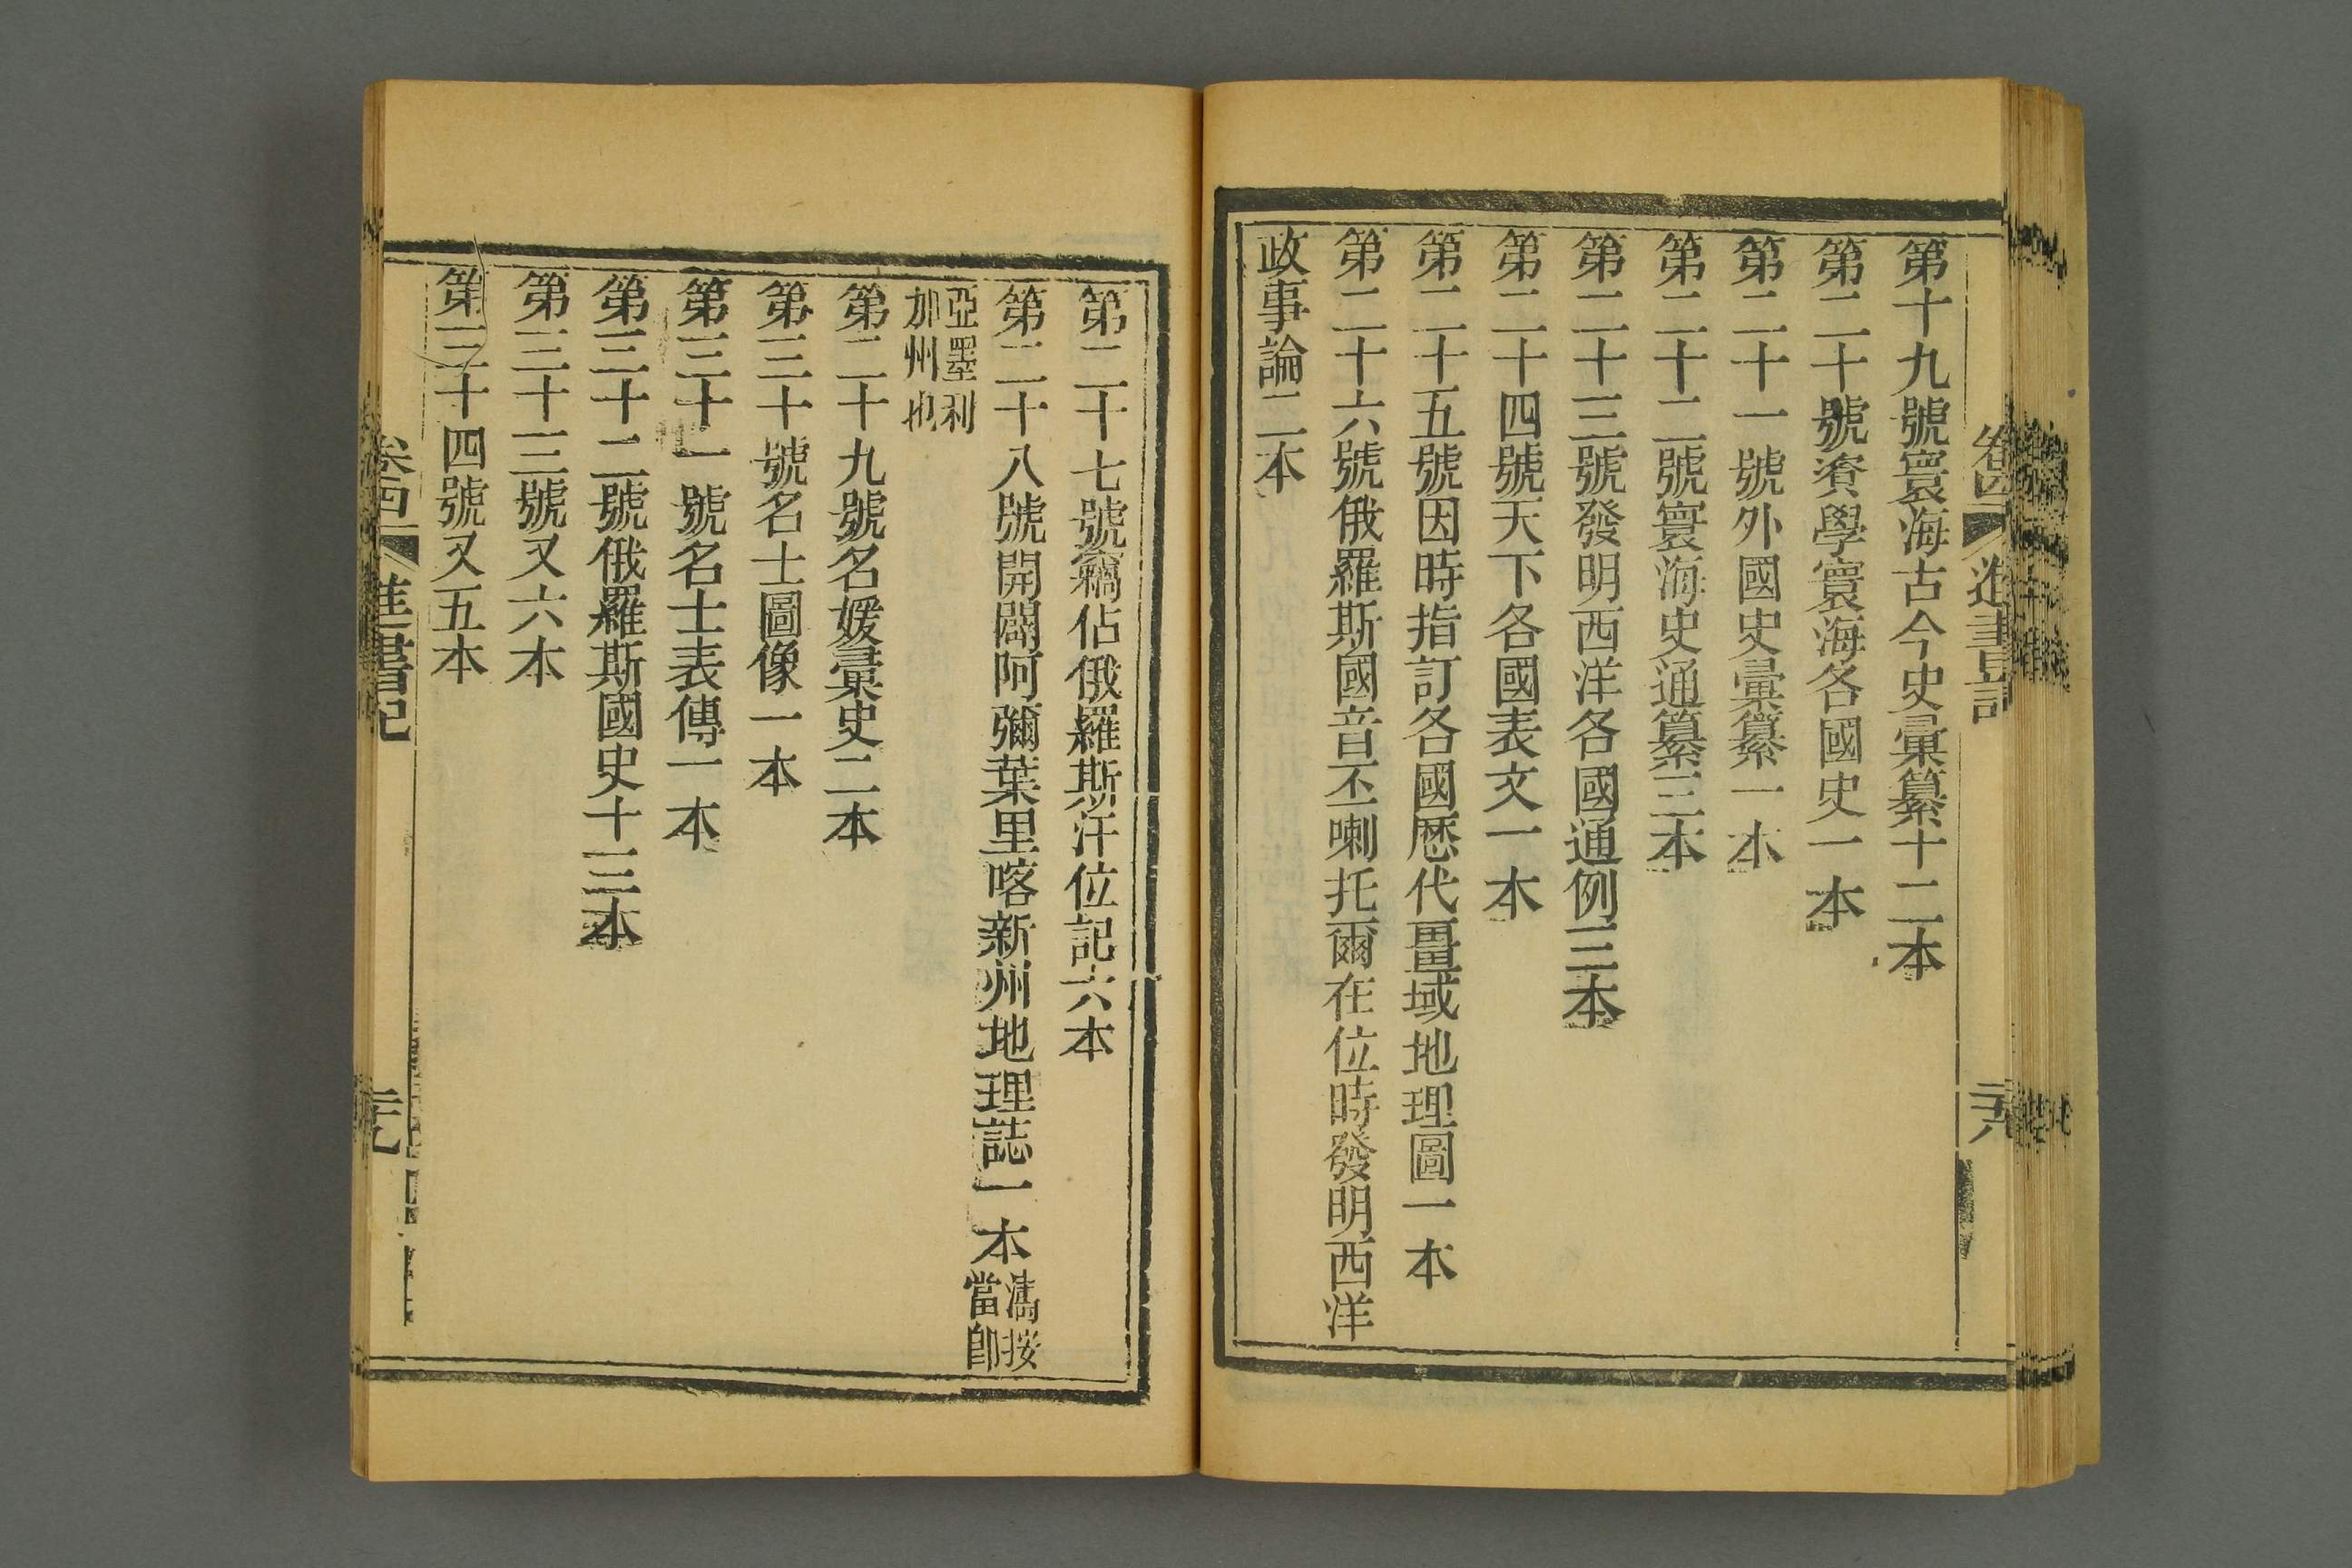 第十九號寰海古今史彙纂十二本
第二十號資學寰海各國史一本
第二十一號外國史彙纂一本
第二十二號寰海史通纂三本
第二十三號發明西洋各國通例三本
第二十四號天下各國表文一本
第二十五號因時指訂各國歷代畺域地理圖一本
第二十六號俄羅斯國音丕喇托爾在位時發明西洋
政事論二本
第二十七號竊佔俄羅斯汗位記六本
第二十八號開闢阿彌葉里喀新州地理誌一本濤按
當卽
亞墨利
加州也
第二十九號名媛彙史二本
第三十號名士圖像一本
第三十一號名士表傳一本
第三十二號俄羅斯國史十三本
第三十三號又六本
第三十四號又五本
卷四
進書記